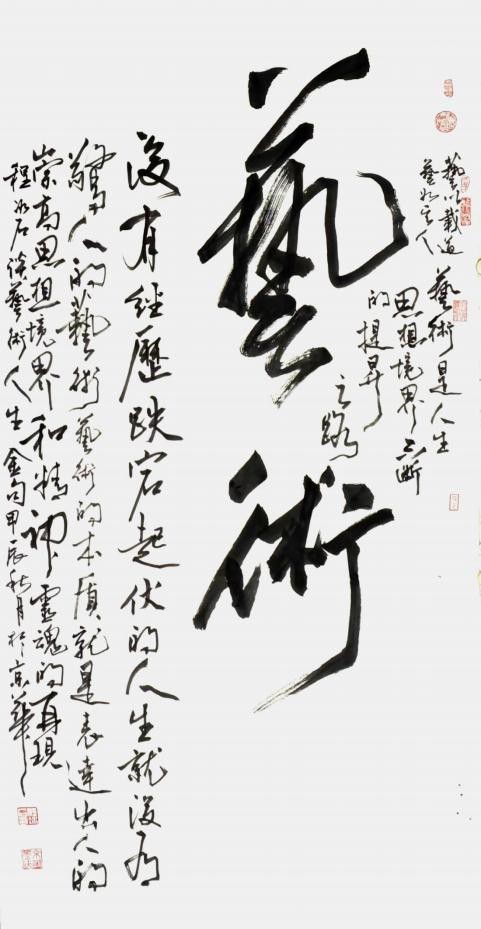 藝以載道
藝如其人
藝術是人生
思想境界不断
的提昇
之路
藝術
没有经歷跌宕起伏的人生就没有
驚人的藝術藝術的本质就是表達出人的
崇高思想境界和精神靈魂的再現
程冰石谈藝術人生金句甲辰秋月於京華